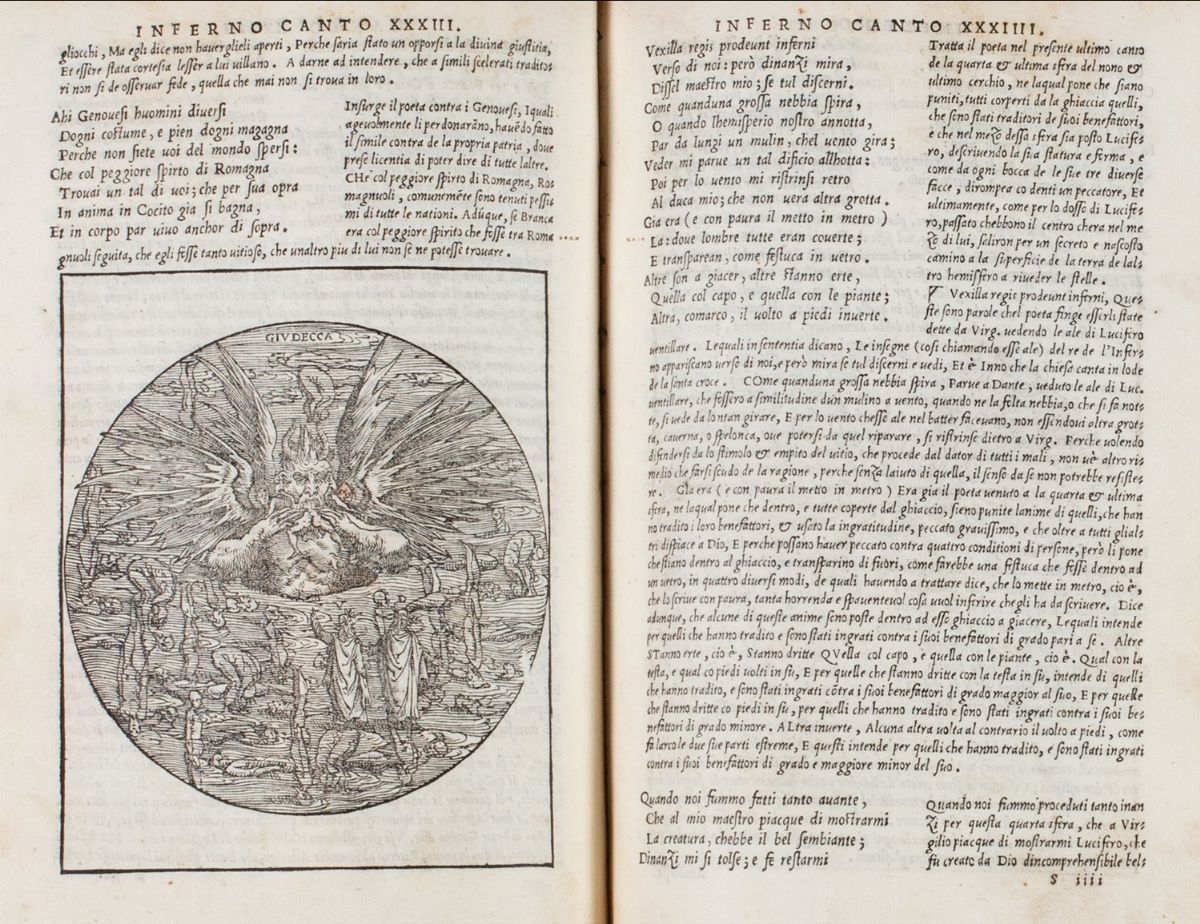 INFERNO CANTO XXXIII.
gliocchi, Ma egli dice non hauerglieli aperti, Perche saria stato un opporsi a la diuina giustitia,
Et essere stata cortesia lesser a lui uillano. A darne ad intendere, che a simili scelerati tradito-
ri non si de osseruar fede, quella che mai non si troua in loro.
Ahi Genouesi huomini diuersi
Dogni costume, e pien dogni magagna
Perche non siete uoi del mondo spersi:
Che col peggiore spirto di Romagna
Trouai un tal di uoi; che per sua opra
In anima in Cocito gia si bagna,
Et in corpo par uiuo anchor di sopra.
Insurge il poeta contra i Genouesi, I quali
ageuolmente li perdonarāno, hauēdo fatto
il simile contra de la propria patria, doue
prese licentia di poter dire di tutte laltre.
CHe col peggiore spirto di Romagna, Ro-
magnuoli, comunemēte sono tenuti pessi-
mi di tutte le nationi. Adūque, se Branca
era col peggiore spirito che fosse tra Roma
gnuoli seguita, che egli fosse tanto uitioso, che unaltro piu di lui non se ne potesse trouare.
GIVDECCA
INFERNO CANTO XXXIIII.
Vexilla regis prodeunt inferni
Verso di noi: però dinanzi mira,
Disse'l maestro mio; se tul discerni.
Come quanduna grossa nebbia spira,
O quando lhemisperio nostro annotta,
Par da lungi un mulin, chel uento gira;
Veder mi parue un tal dificio allhotta:
Poi per lo uento mi ristrinsi retro
Al duca mio; che non uera altra grotta.
Gia era (e con paura il metto in metro)
La: doue lombre tutte eran couerte;
E transparean, come festuca in uetro.
Altre son a giacer, altre stanno erte,
Quella col capo, e quella con le piante;
Altra, comarco, il uolto a piedi inuerte.
Tratta il poeta nel presente ultimo canto
de la quarta & ultima sfera del nono &
ultimo cerchio, ne laqual pone che siano
puniti, tutti coperti da la ghiaccia quelli,
che sono stati traditori de suoi benefattori,
e che nel mezo dessa sfera sia posto Lucife-
ro, descriuendo la sua statura e forma, e
come da ogni bocca de le sue tre diuerse
facce, dirompea co denti un peccatore, Et
ultimamente, come per lo dosso di Lucife-
ro, passato chebbono il centro chera nel me
zo di lui, saliron per un secreto e nascosto
camino a la superficie de la terra de lal-
tro hemispero a riueder le stelle.
Vexilla regis prodeunt inferni, Que-
ste sono parole chel poeta finge esserli state
dette da Virg. uedendo le ale di Lucifero
uentillare. Lequali in sententia dicano, Le insegne (cosi chiamando esse ale) del re de l'Infer-
no appariscano uerso di noi, e però mira se tul discerni e uedi, Et è Inno che la chiesa canta in lode
de la santa croce. COme quanduna grossa nebbia spira, Parue a Dante, ueduto le ale di Luc.
uentillare, che fossero a similitudine dun mulino a uento, quando ne la folta nebbia, o che si fa not-
te, si uede da lontan girare, E per lo uento chesse ale nel batter faceuano, non essendoui altra grot-
ta, cauerna, o spelonca, oue potersi da quel riparare, si ristrinse dietro a Virg. Perche uolendo
difendersi da lo stimolo & empito del uitio, che procede dal dator di tutti i mali, non uè altro ri-
medio che farsi scudo de la ragione, perche senza laiuto di quella, il senso da se non potrebbe resiste-
re. GIa era (e con paura il metto in metro) Era gia il poeta uenuto a la quarta & ultima
sfera, ne laqual pone che dentro, e tutte coperte dal ghiaccio, sieno punite lanime di quelli, che han
no tradito i loro benefattori, & usato la ingratitudine, peccato grauissimo, e che oltre a tutti glial-
tri dispiace a Dio, E perche possano hauer peccato contra quattro conditioni di persone, però li pone
che stiano dentro al ghiaccio, e transparino di fuori, come farebbe una festuca che fosse dentro ad
un uetro, in quattro diuersi modi, de quali hauendo a trattare dice, che lo mette in metro, cio è,
che lo scriue con paura, tanta horrenda e spauenteuol cosa uuol inferire che gli ha da scriuere. Dice
adunque, che alcune di queste anime sono poste dentro ad esso ghiaccio a giacere, Lequali intende
per quelli che hanno tradito e sono stati ingrati contra i suoi benefattori di grado pari a se. Altre
STanno erte, cio è, Stanno dritte QVella col capo, e quella con le piante, cio è. Qual con la
testa, e qual co piedi uolti in su, E per quelle che stanno dritte con la testa in su, intende di quelli
che hanno tradito, e sono stati ingrati cōtra i suoi benefattori di grado maggior al suo, E per quelle
che stanno dritte co piedi in su, per quelli che hanno tradito e sono stati ingrati contra i suoi be-
nefattori di grado minore. ALtra inuerte, Alcuna altra uolta al contrario il uolto a piedi, come
fa larco le due sue parti estreme, E questi intende per quelli che hanno tradito, e sono stati ingrati
contra i suoi benefattori di grado e maggiore minor del suo.
Quando noi fummo fatti tanto auante,
Che al mio maestro piacque di mostrarmi
La creatura, chebbe il bel sembiante;
Dinanzi mi si tolse; e fe restarmi
Quando noi fummo proceduti tanto inan
zi per questa quarta sfera, che a Vir-
gilio piacque di mostrarmi Lucifero, che
fu creato da Dio dincomprehensibile bel-
S iiii